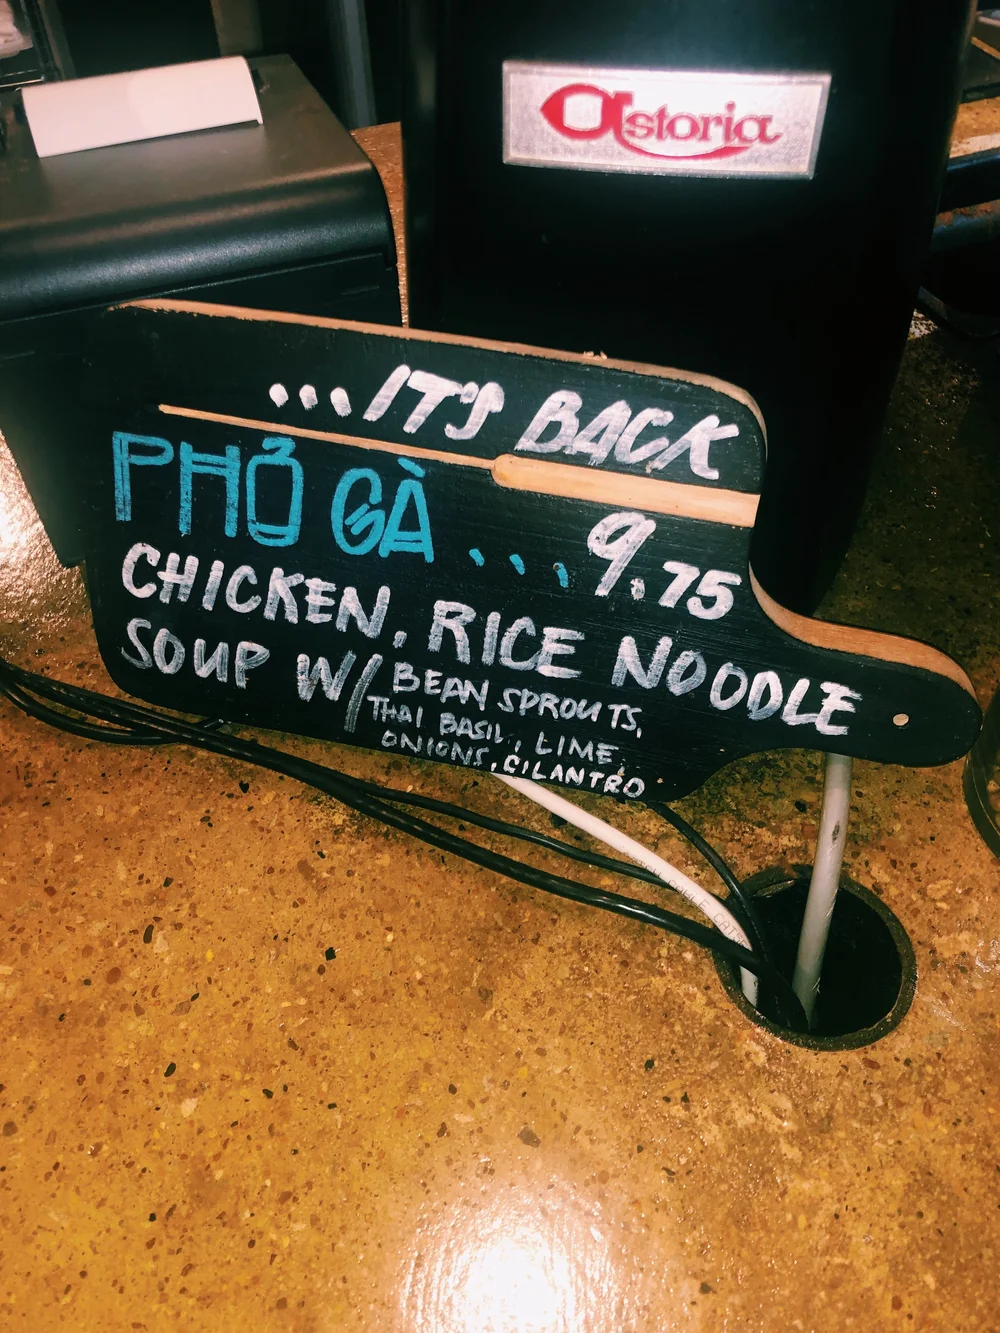 Astoria
...IT'S BACK
PHỞ GÀ ... 9.75
CHICKEN, RICE NOODLE
SOUP W/ BEAN SPROUTS,
THAI BASIL, LIME,
ONIONS, CILANTRO